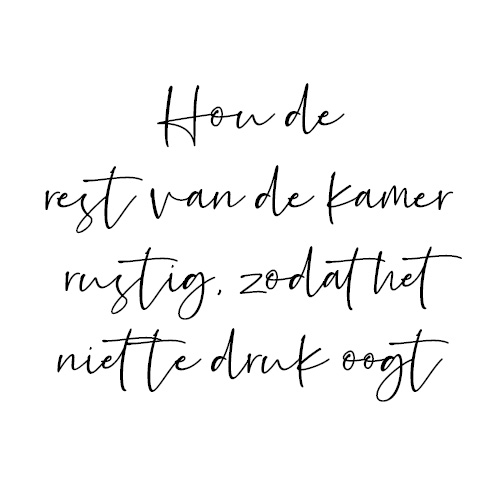 Hou de
rest van de kamer
rustig, zodat het
niet te druk oogt